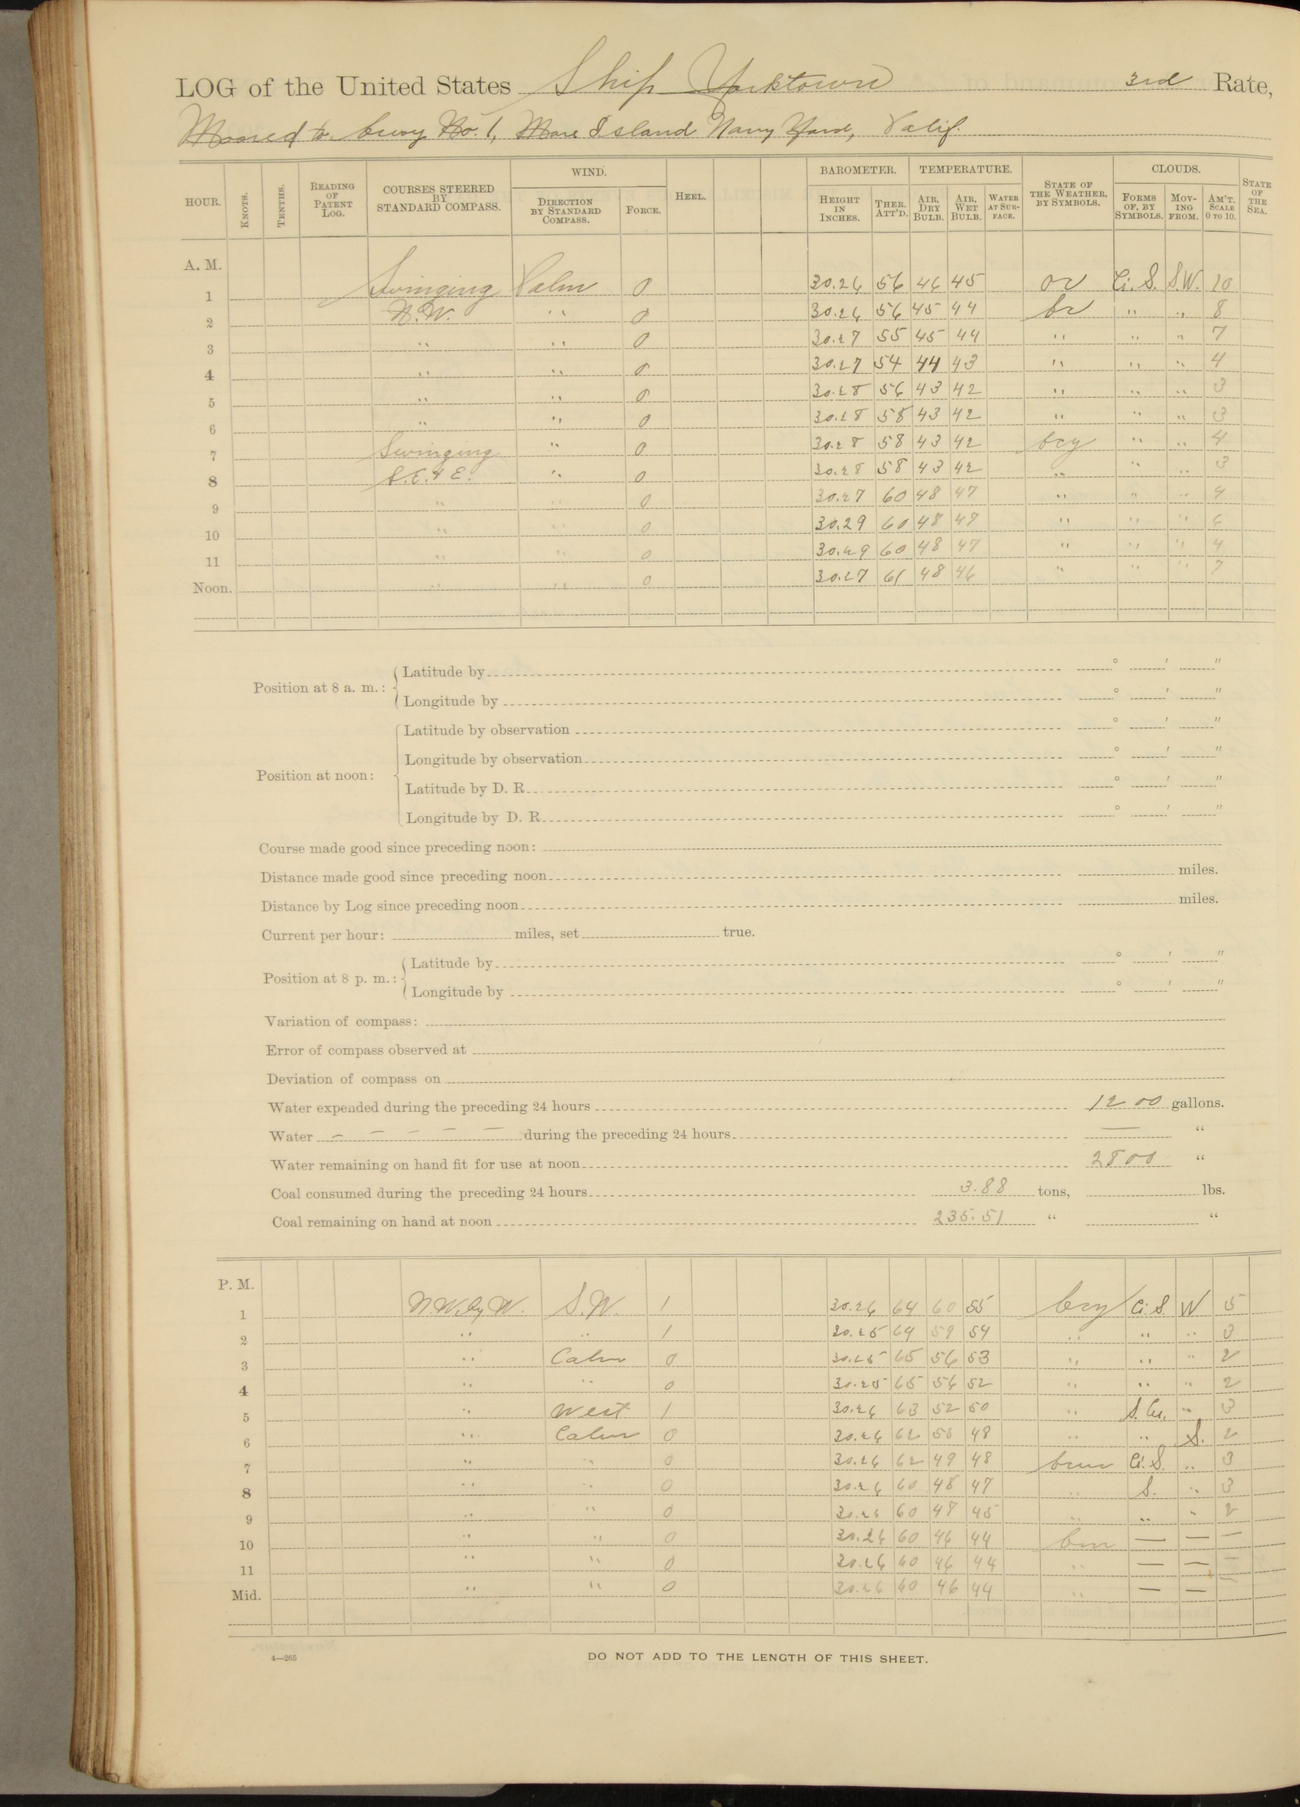 LOG of the United States Ship Yorktown 3rd Rate,
Moored to buoy No. 1, Mare Island Navy Yard, Calif.
HOUR. KNOTS. TENTHS. READING OF PATENT LOG. COURSES STEERED BY STANDARD COMPASS. WIND. DIRECTION BY STANDARD COMPASS. FORCE. HEEL. BAROMETER. HEIGHT IN INCHES. THER. ATT'D. TEMPERATURE. AIR, DRY BULB. AIR, WET BULB. WATER AT SURFACE. STATE OF THE WEATHER, BY SYMBOLS. CLOUDS. FORMS OF, BY SYMBOLS. MOVING FROM. AM'T. SCALE 0 TO 10. STATE OF THE SEA.
A. M.
1 Swinging Calm 0 30.26 56 46 45 or Ci. S. S.W. 10
2 N.W. " 0 30.26 56 45 44 br " " 8
3 " " 0 30.27 55 45 44 " " " 7
4 " " 0 30.27 54 44 43 " " " 4
5 " " 0 30.28 56 43 42 " " " 3
6 " " 0 30.28 58 43 42 " " " 3
7 Swinging " 0 30.28 58 43 42 bcy " " 4
8 S.E. & E. " 0 30.28 58 43 42 " " " 3
9 " " 0 30.27 60 48 47 " " " 4
10 " " 0 30.29 60 48 47 " " " 6
11 " " 0 30.29 60 48 47 " " " 4
Noon. " " 0 30.27 61 48 46 " " " 7
Position at 8 a. m.: Latitude by ° ' "
Longitude by ° ' "
Position at noon: Latitude by observation ° ' "
Longitude by observation ° ' "
Latitude by D. R. ° ' "
Longitude by D. R. ° ' "
Course made good since preceding noon:
Distance made good since preceding noon miles.
Distance by Log since preceding noon miles.
Current per hour: miles, set true.
Position at 8 p. m.: Latitude by ° ' "
Longitude by ° ' "
Variation of compass:
Error of compass observed at
Deviation of compass on
Water expended during the preceding 24 hours 1200 gallons.
Water — — — — — during the preceding 24 hours — "
Water remaining on hand fit for use at noon 2800 "
Coal consumed during the preceding 24 hours 3.88 tons, lbs.
Coal remaining on hand at noon 235.51 " "
P. M.
1 N.W. by W. S.W. 1 30.26 64 60 55 bcy Ci. S. W 5
2 " " 1 30.25 64 59 54 " " " 3
3 " Calm 0 30.25 65 56 53 " " " 2
4 " " 0 30.25 65 56 52 " " " 2
5 " West 1 30.26 63 52 50 " S. Cu. " 3
6 " Calm 0 30.26 62 50 48 " " S. 2
7 " " 0 30.26 62 49 48 bcm Ci. S. " 3
8 " " 0 30.26 60 48 47 " S. " 3
9 " " 0 30.26 60 47 45 " " " 2
10 " " 0 30.26 60 46 44 bm — — —
11 " " 0 30.26 60 46 44 " — — —
Mid. " " 0 30.26 60 46 44 " — — —
4—265
DO NOT ADD TO THE LENGTH OF THIS SHEET.